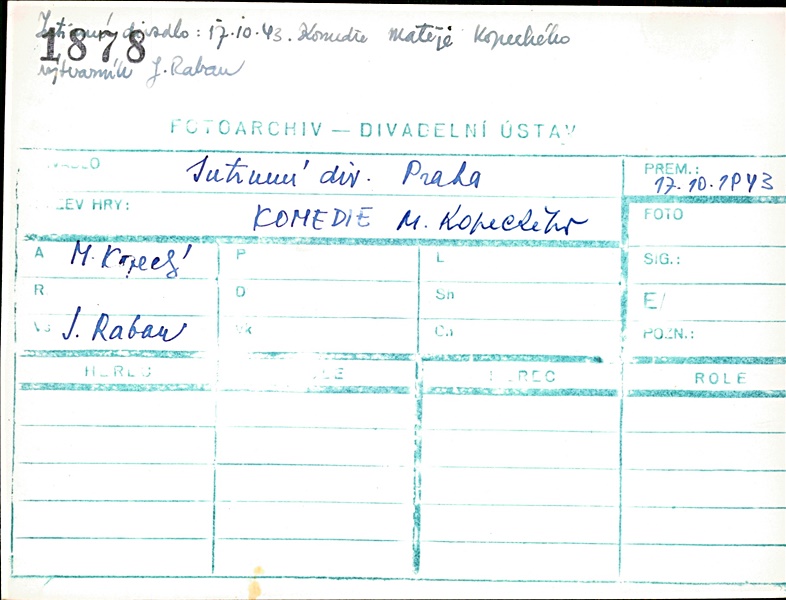 Intimní divadlo: 17.10.43. Komedie Matěje Kopeckého
1878
výtvarník J. Raban
FOTOARCHIV — DIVADELNÍ ÚSTAV
VADLO Intimní div. Praha
PREM.: 17.10.1943
ZEV HRY: KOMEDIE M. Kopeckého
FOTO
A M. Kopecký P L SIG.:
R O Sn E/
J. Raban POZN.:
HEREC HEREC ROLE